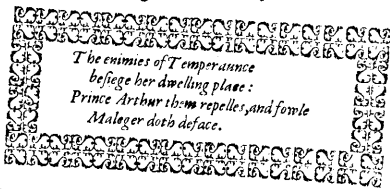 The enimies of Temperaunce
besiege her dwelling place:
Prince Arthur them repelles, and fowle
Maleger doth deface.